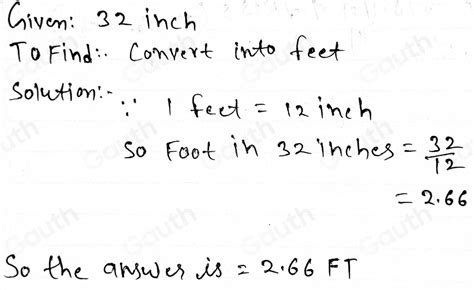 Given: 32 inch
To Find:. Convert into feet
Solution:-
∵ 1 feet = 12 inch
So Foot in 32 inches = 32/12
= 2.66
So the answer is = 2.66 FT
Gauth